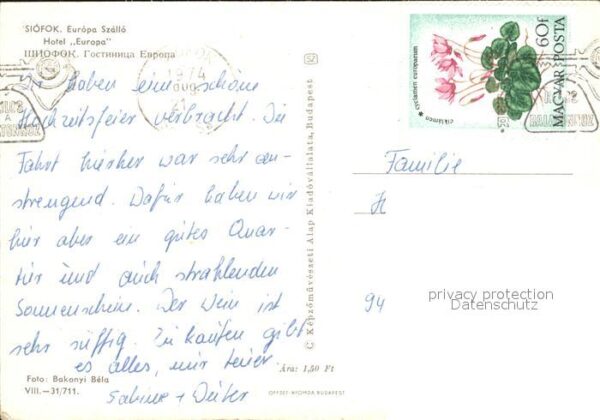 SIÓFOK. Európa Szálló
Hotel „Europa"
ШИОФОК. Гостиница Европа
Wir haben eine schöne
Hochzeitsfeier verbracht. Die
Fahrt hierher war sehr an-
strengend. Dafür haben wir
hier aber ein gutes Quar-
tier und auch strahlenden
Sonnenschein. Der Wein ist
sehr süffig. Zu kaufen gibt
es alles, nur teuer
Sabine + Dieter
Foto: Bakonyi Béla
VIII.—31/711.
Ára: 1,50 Ft
OFFSET NYOMDA BUDAPEST
© Képzőművészeti Alap Kiadóvállalata, Budapest
1974
60f
MAGYAR POSTA
cyclamen europaeum
ciklámen
Familie
H
94
privacy protection
Datenschutz